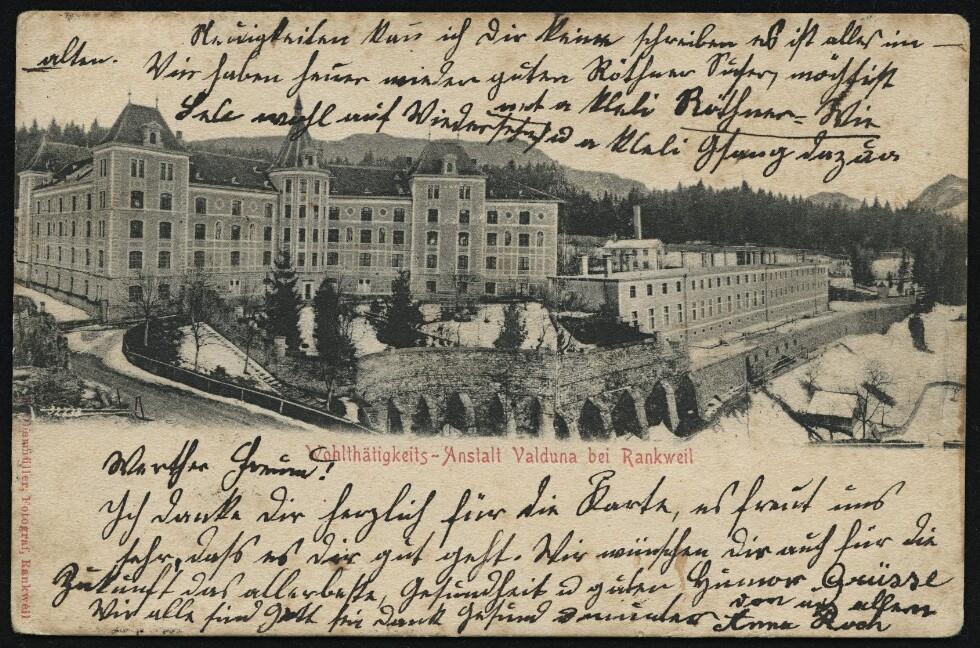 Neuigkeiten kan ich Dir keine schreiben es ist alles im
alten. Wir haben heuer wieder guten Röthner Suser, möchtist
Lebe wohl auf Wiedersehn
net a kleli Röthner-Wie
u a kleli Gsang dazua
Wohlthätigkeits-Anstalt Valduna bei Rankweil
Fotograf, Rankweil
Werther Freund!
Ich danke Dir herzlich für die Karte, es freut uns
sehr, dass es Dir gut geht. Wir wünschen Dir auch für die
Zukunft das allerbeste, Gesundheit u guten Humor Grüsse
Wir alle sind Gott sei Dank Gesund munter
von uns allen
Anna Koch